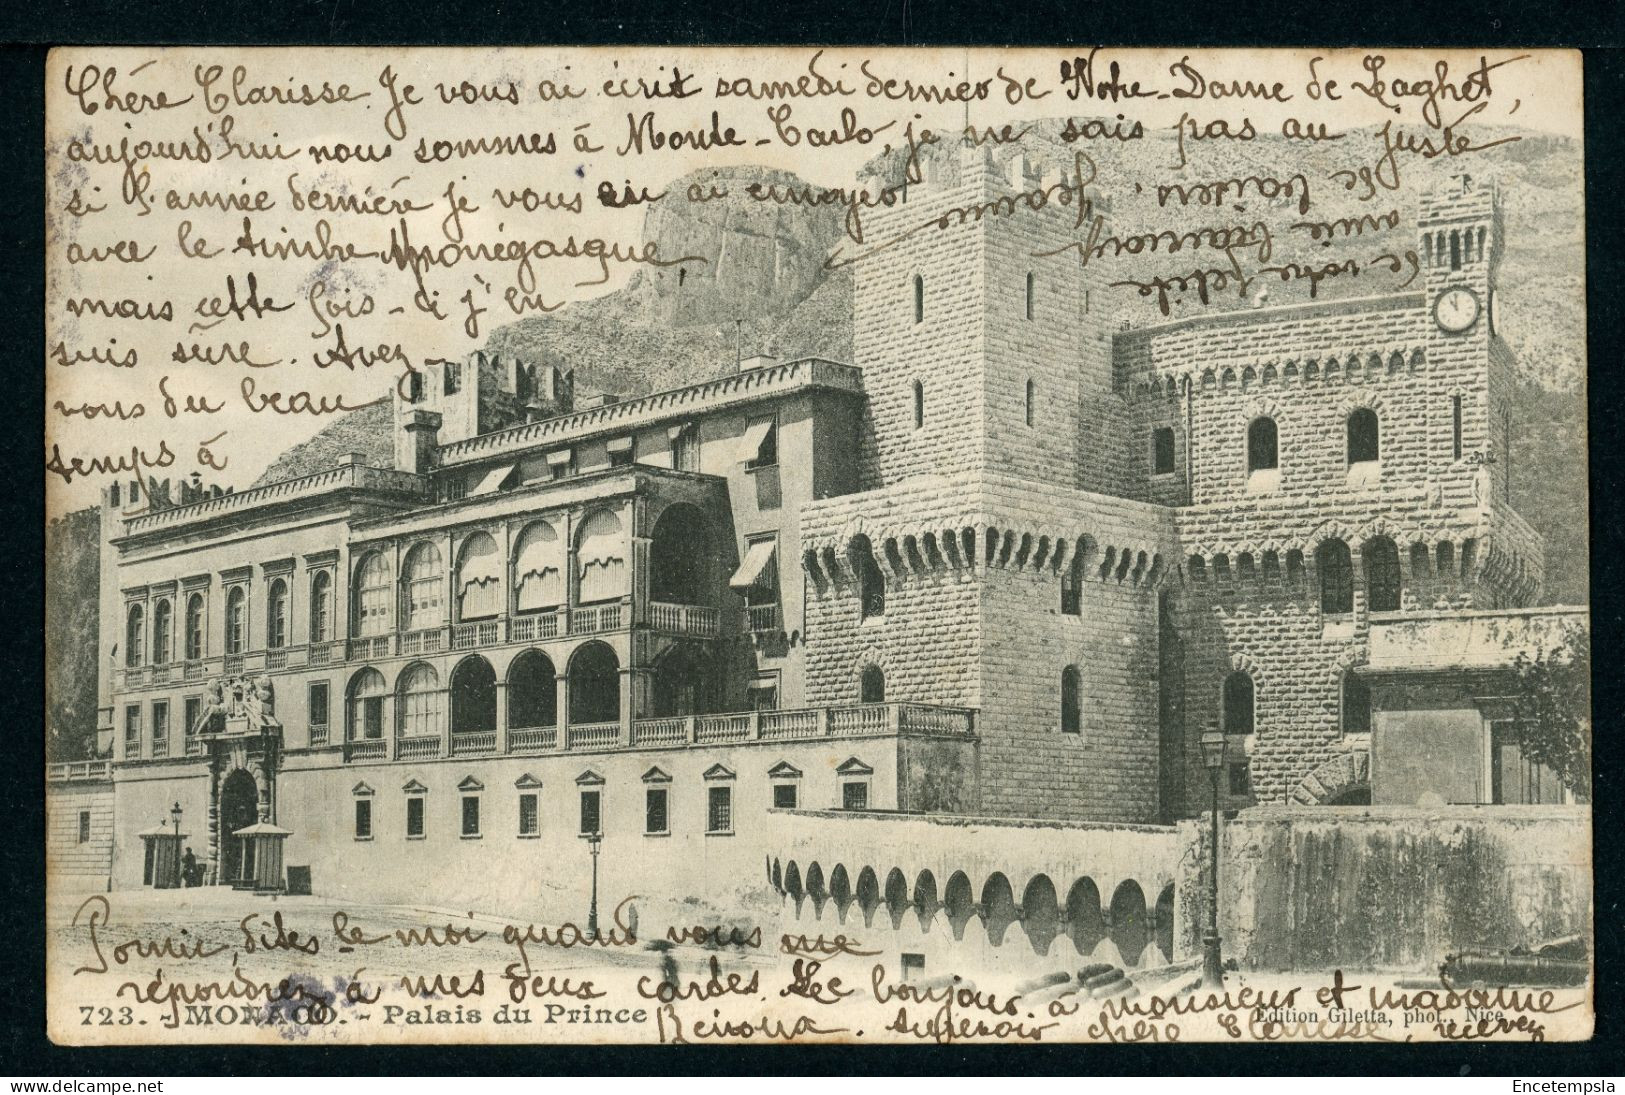 Chére Clarisse. Je vous ai écrit samedi dernier de Notre-Dame de Laghet,
aujourd'hui nous sommes à Monte-Carlo, je ne sais pas au juste
si l'année derniére je vous en ai envoyer
avec le timbre Monégasque,
mais cette fois-ci j'en
suis sûre. Avez-
vous du beau
temps à
Pornic, dites le moi quand vous me
répondrez à mes deux cartes. Le bonjour à monsieur et madame
Aurevoir chère Clarisse, recevez
de votre petite
amie
de baisers.
Jeanne
723. - MONACO. - Palais du Prince
Edition Giletta, phot., Nice
delcampe.net
Encetempsla